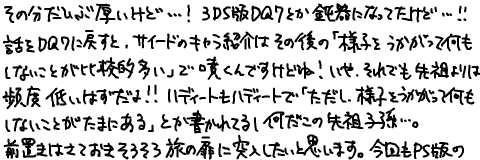 その分だいぶ厚いけど…！3DS版DQ7とか鈍器になってたけど…!!
話をDQ7に戻すと、サイードのキャラ紹介はその後の「様子をうかがって何も
しないことが比較的多い」で噴くんですけどね！いや、それでも先祖よりは
頻度低いはずだよ!!ハディートもハディートで「ただし、様子をうかがって何も
しないことがたまにある」とか書かれてるし何だこの先祖子孫…。
前置きはさておきそろそろ旅の扉に突入したいと思います。今回もPS版の